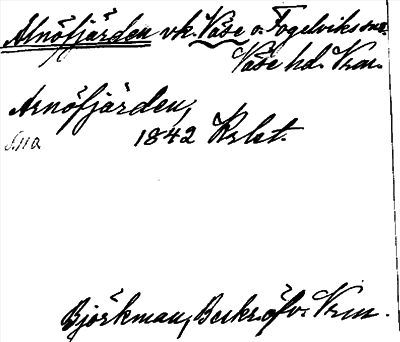 Arnöfjärden vk. Väse o. Fogelviks snr.
Väse hd. Vrm.
Arnöfjärden,
1842 Krkt.
Björkman, Beskr. öfv. Vrm.